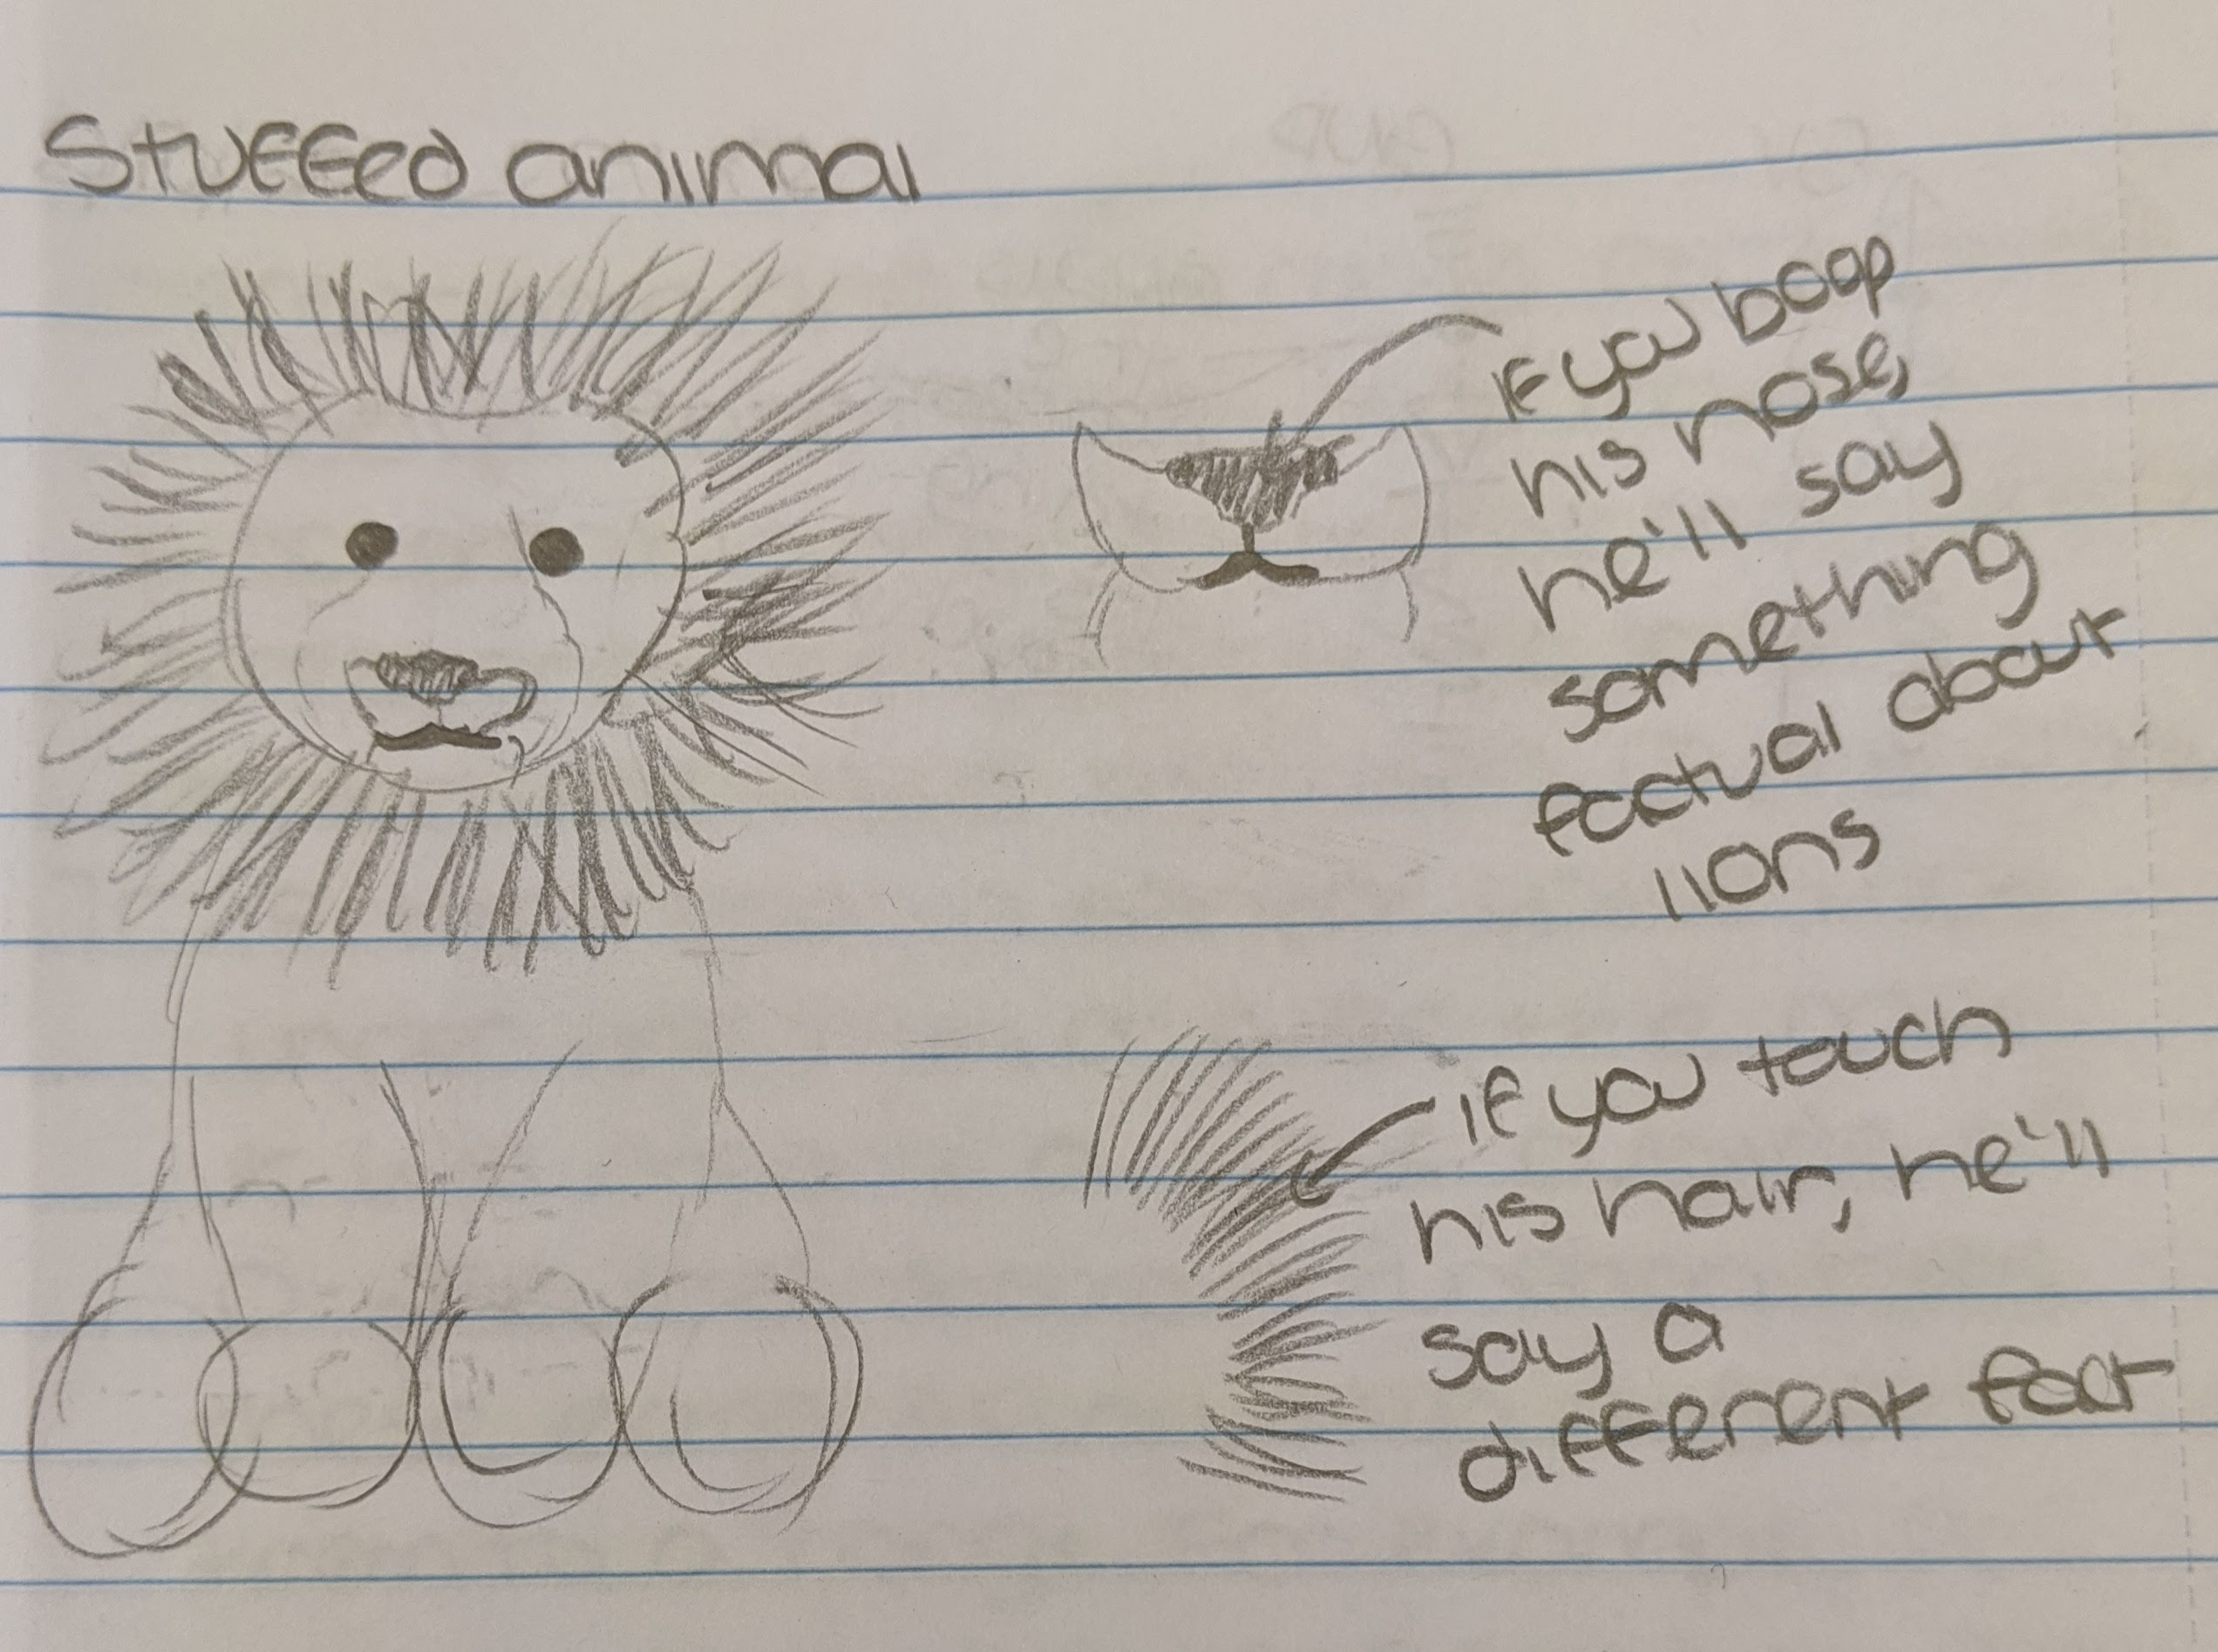 Stuffed animal
If you boop
his nose,
he'll say
something
factual about
lions
If you touch
his hair, he'll
say a
different fact